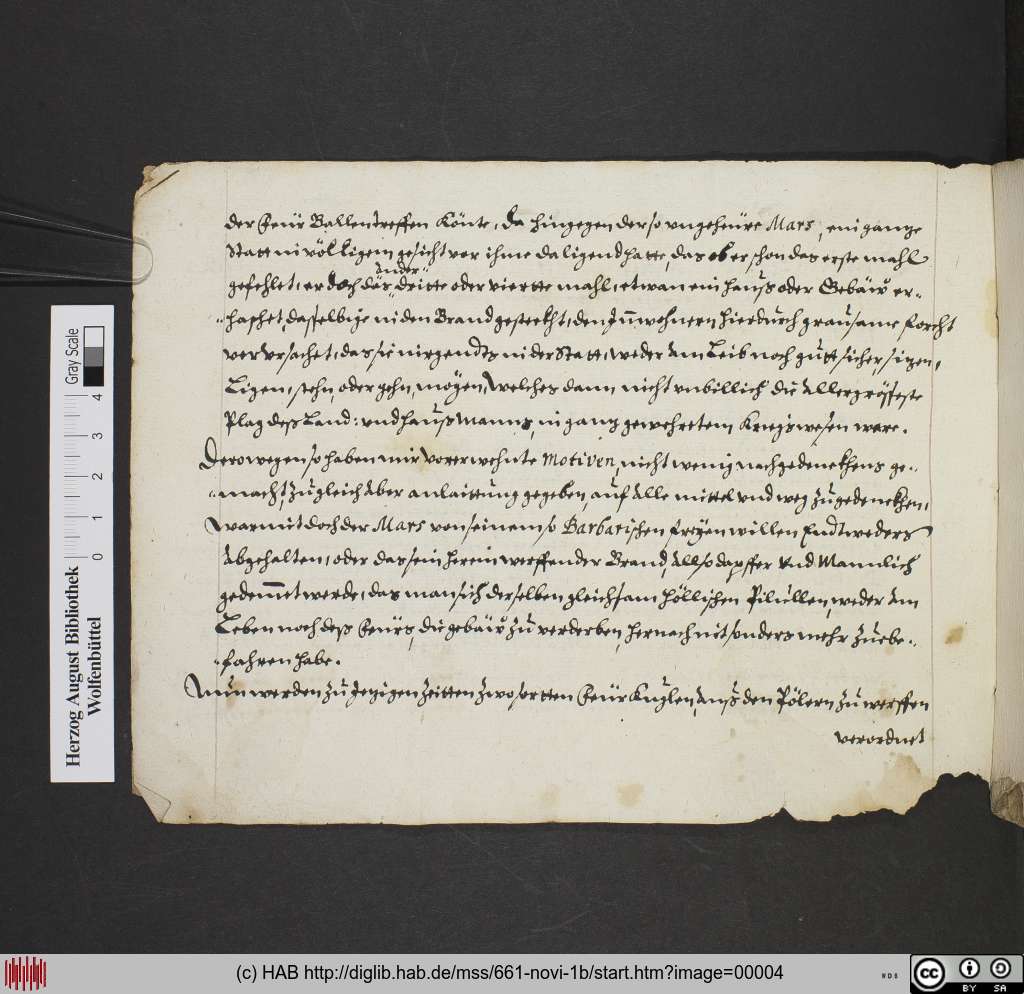 der Feür Ballen treffen Könte, da hingegen der so vngeheüre Mars, ein gantze
Statt in völligem gesicht vor ihme da ligend hatte, das ob er schon das erste mahl
gefehlet, er doch das ander dritte oder viertte mahl, etwan ein hauß oder Gebäw er-
haschet, dasselbige in den Brand gesteckht, den Innwohnern hierdurch grausame forcht
verursachet, das sie nirgendts in der Statt, weder am Leib noch gutt sicher, sitzen,
Ligen, stehn, oder gehn, mögen, Welches dann nicht vnbillich die Allergrösseste
Plag deß Land: und hauß Manns, in gantz gewehretem Kriegswesen ware.
Derowegen so haben mir vorerwehnte Motiven, nicht wenig nachgedenckhens ge-
macht, zugleich Aber anlaittung gegeben, auf Alle mittel vnd weg zu gedenckhen,
Warmit doch der Mars von seinem so Barbarischen freyen willen Endtweders
Abgehalten, oder das sein herein werffender Brand, Allso dapffer Vnd Mannlich
gedemmet werde, das man sich derselben gleichsam höllischen Pilullen, weder am
Leben noch deß Feürs, die gebäw zu verderben, hernach nit sonders mehr zu be-
fahren habe.
Nun werden zu Jetzigen Zeitten zwo sortten Feür Kuglen, auß den Pölern zu werffen
verordnet
Gray Scale
0 1 2 3 4
Herzog August Bibliothek
Wolfenbüttel
(c) HAB http://diglib.hab.de/mss/661-novi-1b/start.htm?image=00004
cc BY SA